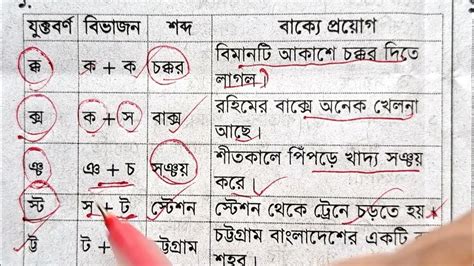 যুক্তবর্ণ বিভাজন শব্দ বাক্যে প্রয়োগ
ক্ক ক + ক চক্কর বিমানটি আকাশে চক্কর দিতে
লাগল।
ক্স ক + স বাক্স রহিমের বাক্সে অনেক খেলনা
আছে।
ঞ্চ ঞ + চ সঞ্চয় শীতকালে পিঁপড়ে খাদ্য সঞ্চয়
করে।
স্ট স + ট স্টেশন স্টেশন থেকে ট্রেনে চড়তে হয়।
ট্ট ট + চট্টগ্রাম চট্টগ্রাম বাংলাদেশের একটি
শহর।